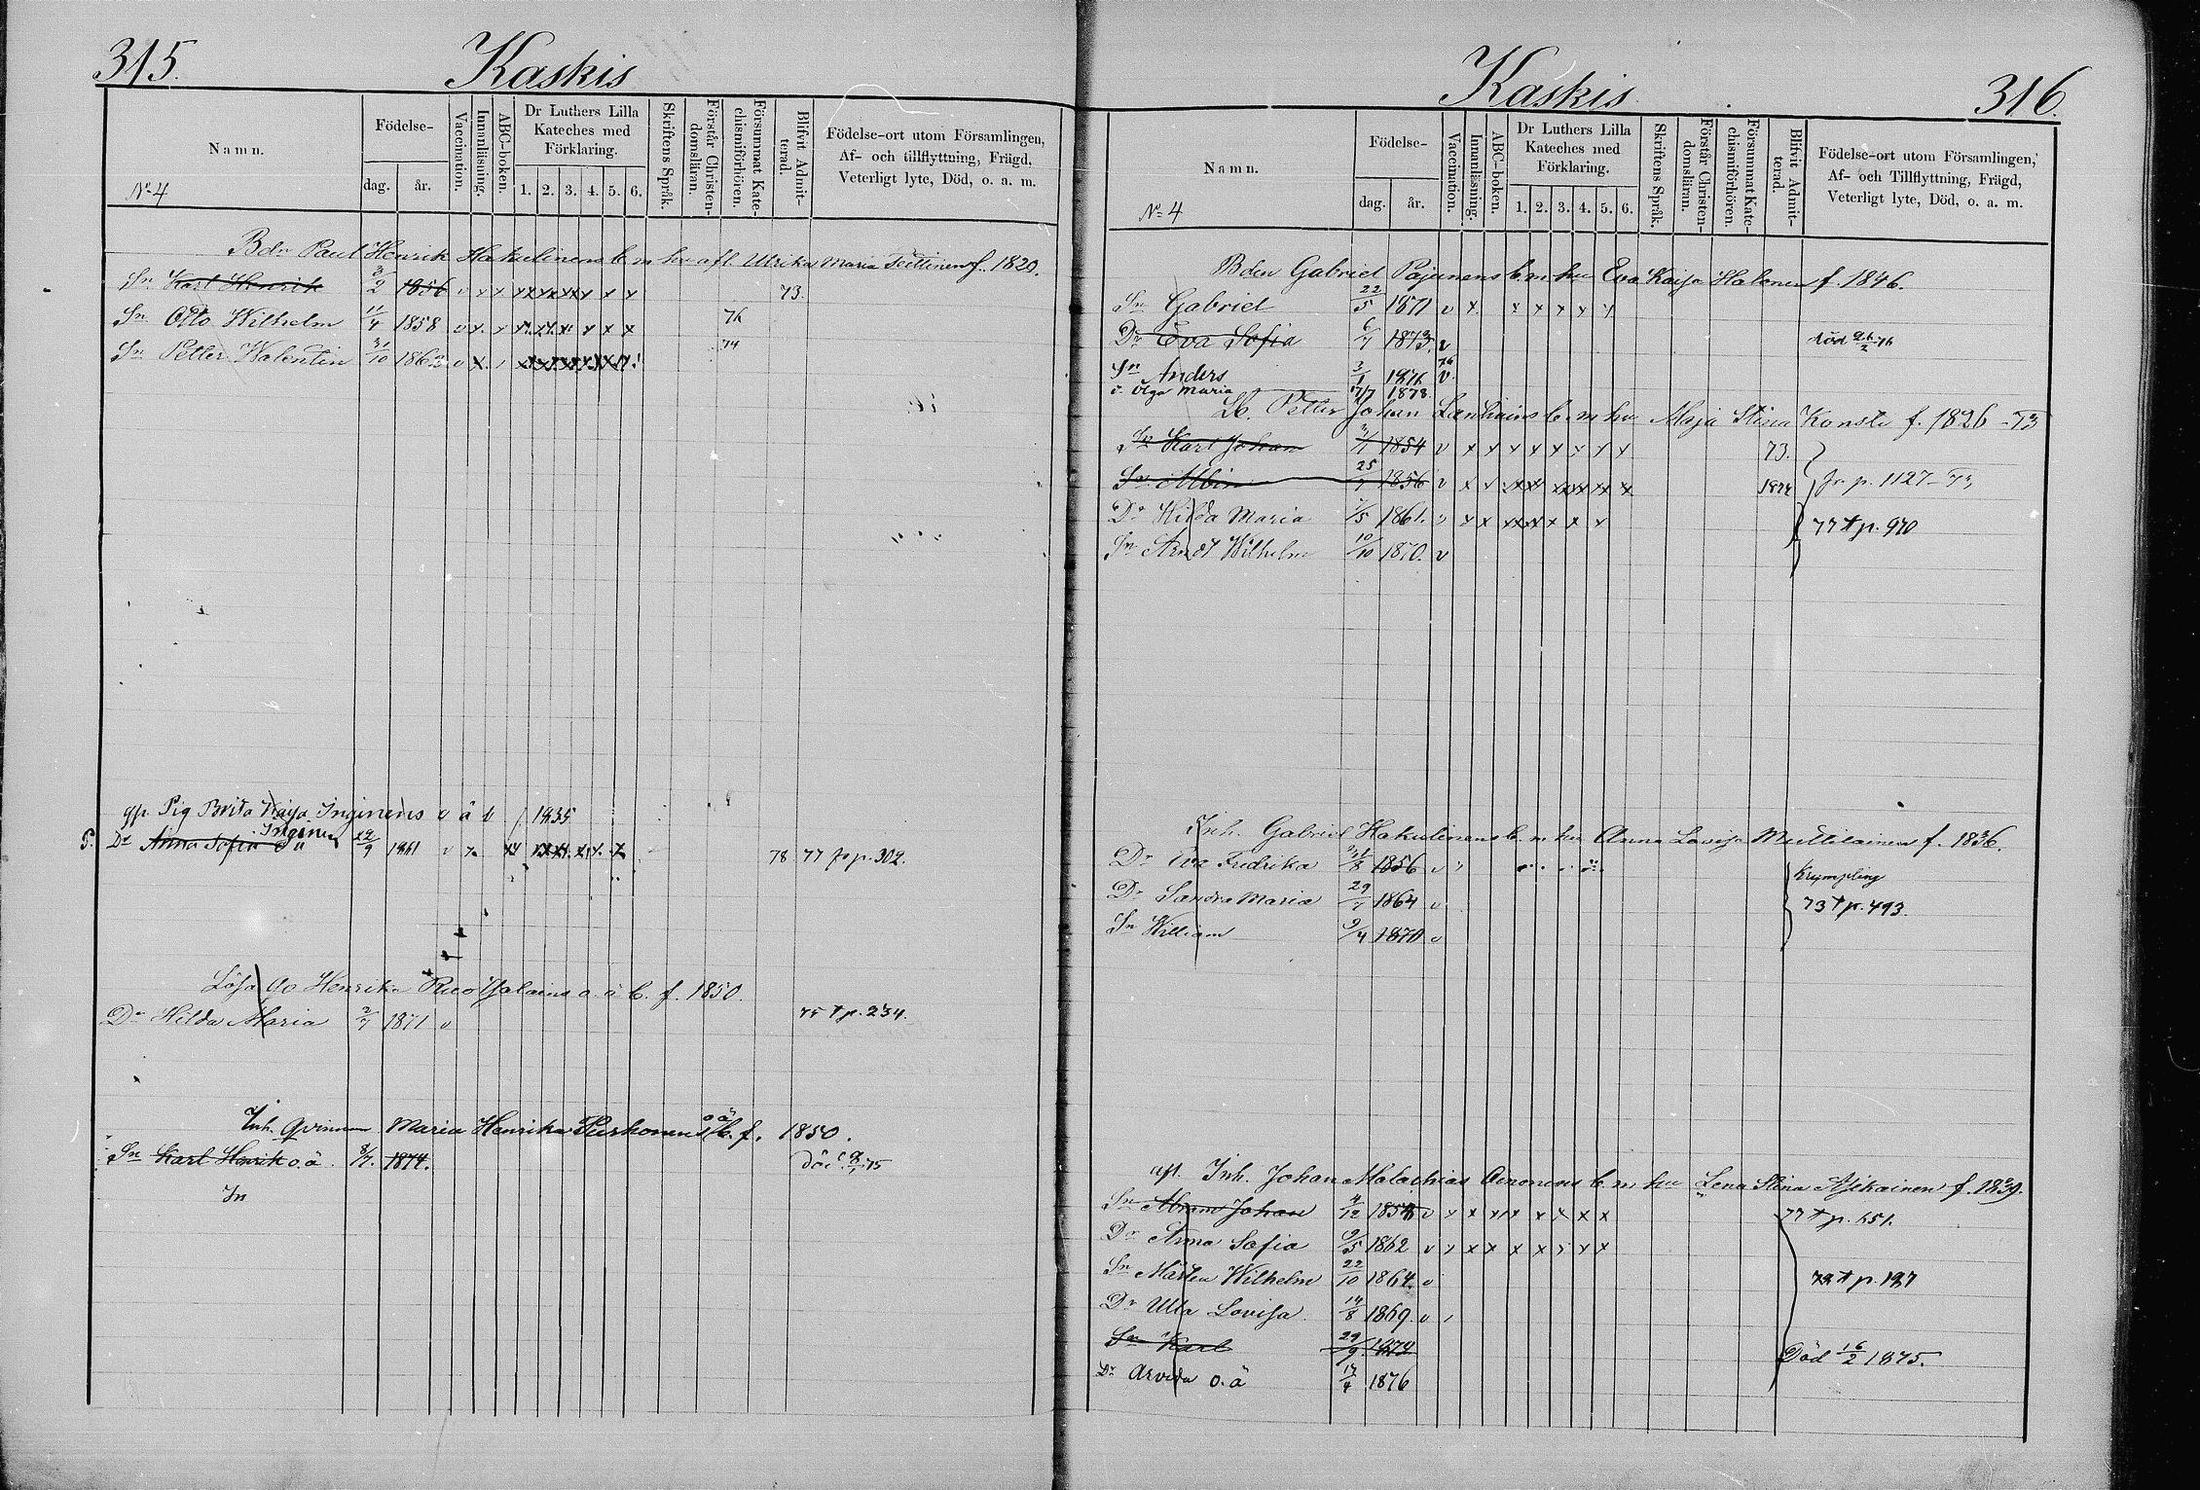 315.
Kaskis
Namn.
Födelse-
dag.
år.
Vaccination.
Innanläsning.
ABC-boken.
Dr Luthers Lilla
Kateches med
Förklaring.
1. 2. 3. 4. 5. 6.
Skriftens Språk.
Förstår Christen-
domsläran.
Försummat Kate-
chismiförhören.
Blifvit Admit-
terad.
Födelse-ort utom Församlingen,
Af- och tillflyttning, Frägd,
Veterligt lyte, Död, o. a. m.
No 4
Bdn Paul Henrik Hakulinens b. m. hu afl. Ulrika Maria f. 1820.
Sn Karl Henrik 2 1856 v x x x x x x x x 73.
Sn Otto Wilhelm 11/4 1858 v x x x x x x x x 76
Sn Petter Walentin 31/10 1863 v x 74
Pig Brita Kaija Inginens o ä b f 1835
Inginen
Dr Anna Sofia o ä 29/9 1861 v x 78 77 fr p. 302.
Lösa Qv Henrika o. ä b. f. 1850.
Dr Hilda Maria 2/7 1871 v 75 † p. 234.
Inh. Qvinnan Maria Henrika Purhonens o ä b. f. 1850.
Sn Karl Henrik o. ä. 8/7. 1874. Död 8/1 75
In
316.
Kaskis
Namn.
Födelse-
dag.
år.
Vaccination.
Innanläsning.
ABC-boken.
Dr Luthers Lilla
Kateches med
Förklaring.
1. 2. 3. 4. 5. 6.
Skriftens Språk.
Förstår Christen-
domsläran.
Försummat Kate-
chismiförhören.
Blifvit Admit-
terad.
Födelse-ort utom Församlingen,
Af- och Tillflyttning, Frägd,
Veterligt lyte, Död, o. a. m.
No 4
Bden Gabriel Pajunens b. m. hu Eva Kaisa Halonen f. 1846.
Sn Gabriel 22/5 1871 v x x x x x x
Dr Eva Sofia 6/7 1873. v död 26/2 76
Sn Anders 3/1 1876 v 76
Olga Maria 17/7 1878.
Petter Johan b. m. hu Maja Stina f. 1826 - 73
Sn Karl Johan 1854 v x x x x x x x x 73.
Sn Albin 25/7 1856 v x x x x x x x x 1874 fr p. 1127 - 73
Dr Hilda Maria 1/5 1861. v x x x x x x x 77 † p. 970
Sn Arndt Wilhelm 10/10 1870. v
Inh. Gabriel Hakulinens b. m. hu Anna Lovisa f. 1836.
Dr Eva Fredrika 1856 v Krympling
Dr Sandra Maria 29/7 1864 v 73 † p. 493.
Sn William 9/4 1870 v
afl. Inh. Johan Malachias Ainonens b. m. hu Lena Stina f. 1839.
Sn Abram Johan 4/12 1858 v x x x x x x x x 77 † p. 651.
Dr Anna Sofia 9/5 1862 v x x x x x x x x
Sn Mårten Wilhelm 22/10 1864 v † p. 127
Dr Ulla Lovisa. 14/8 1869. v
Sn Karl 29/9 Död 16/2 1875.
Dr Arvida o. ä 17/4 1876